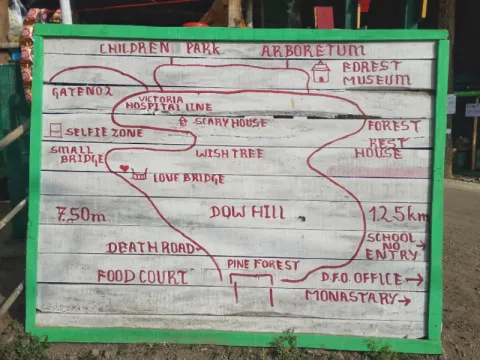 CHILDREN PARK
ARBORETUM
FOREST
MUSEUM
GATENO2
VICTORIA
HOSPITAL LINE
SCARY HOUSE
FOREST
REST
HOUSE
SELFIE ZONE
SMALL
BRIDGE
WISHTREE
LOVE BRIDGE
750m
DOWHILL
1.25km
SCHOOL
NO
ENTRY
DEATH ROAD
PINE FOREST
FOOD COURT
D.F.O. OFFICE
MONASTARY